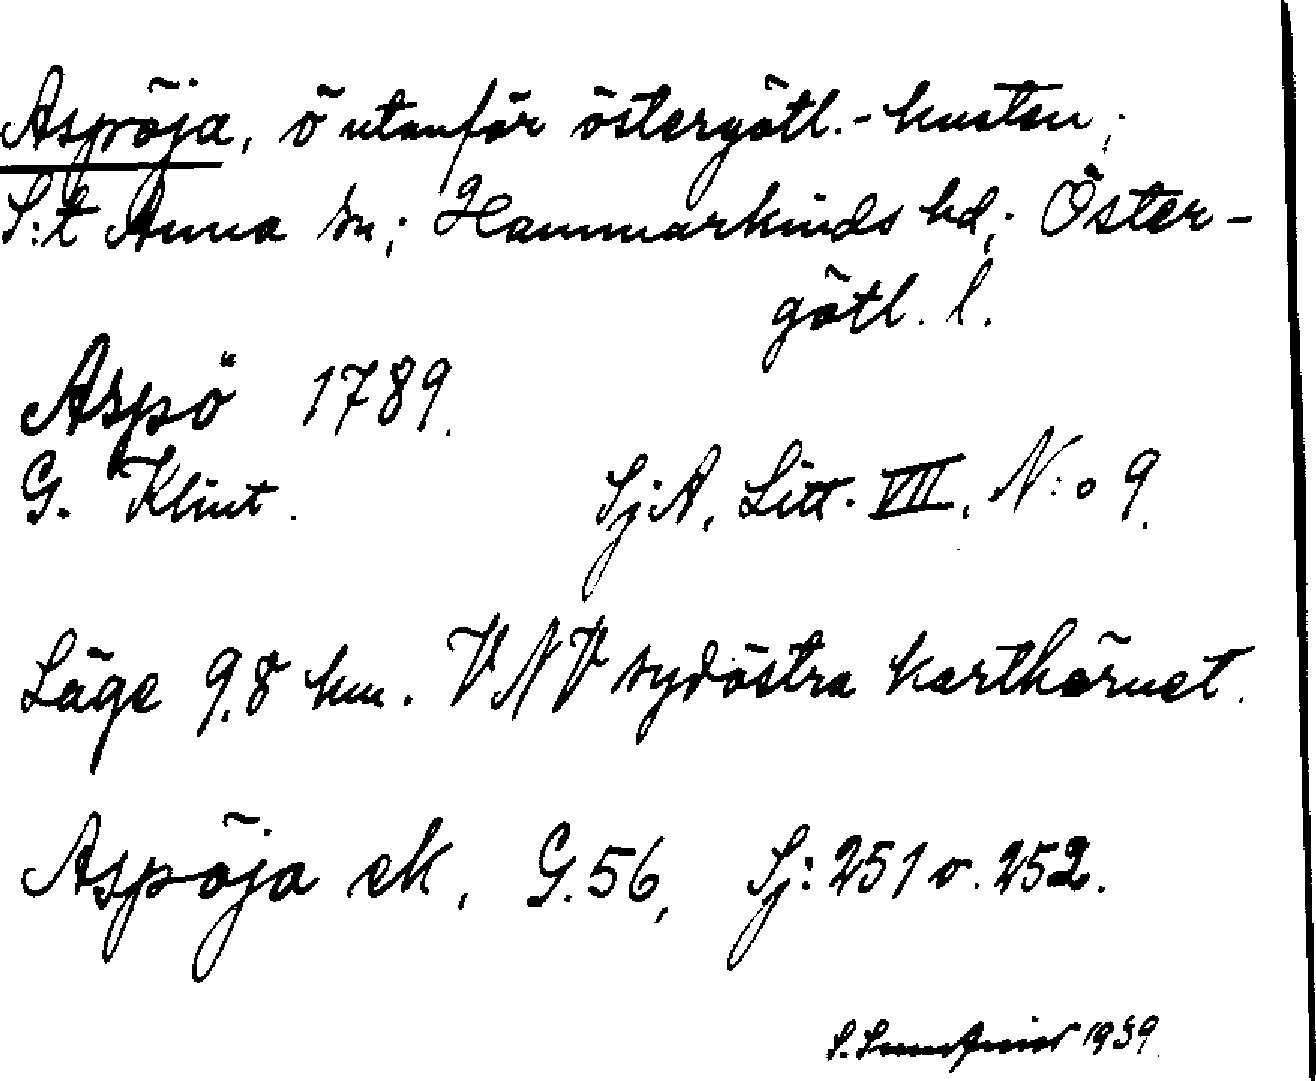 Aspöja, ö utanför östergötl.-kusten;
S:t Anna sn; Hammarkinds hd; Öster-
götl. l.
Aspö 1789.
G. Klint.
Sj:A, Litt. VII, N:o 9.
Läge 9,8 km. VNV sydöstra karthörnet.
Aspöja ek, G.56, Sj: 251 o. 252.
S. 1939